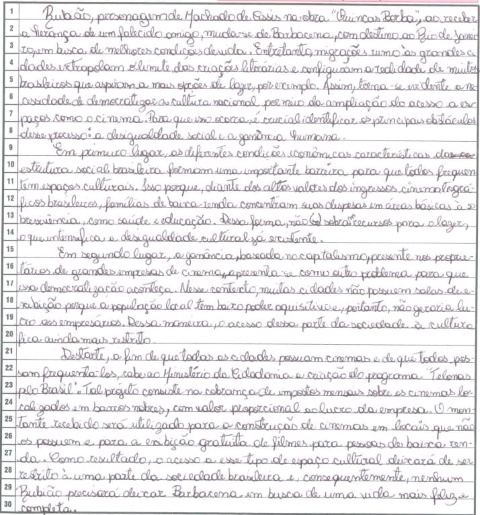 1 Rubião, personagem de Machado de Assis na obra "Quincas Borba", ao receber
2 a herança de um falecido amigo, muda-se de Barbacena, com destino ao Rio de Janei
3 ro, em busca de melhores condições de vida. Entretanto, migrações rumo às grandes ci
4 dades extrapolam o limite das criações literárias e configuram a realidade de muitos
5 brasileiros que aspiram a mais opções de lazer, por exemplo. Assim, torna-se evidente a ne
6 cessidade de democratizar a cultura nacional, por meio da ampliação do acesso a es
7 paços como o cinema. Para que isso ocorra, é crucial identificar os principais obstáculos
8 desse processo: a desigualdade social e a ganância humana.
9 Em primeiro lugar, as diferentes condições econômicas características da
10 estrutura social brasileira formam uma importante barreira para que todos frequen
11 tem espaços culturais. Isso porque, diante dos altos valores dos ingressos cinematográ
12 ficos brasileiros, famílias de baixa renda concentram suas despesas em áreas básicas à so
13 brevivência, como saúde e educação. Dessa forma, não sobra recursos para o lazer,
14 o que intensifica a desigualdade cultural já existente.
15 Em segundo lugar, a ganância, baseada no capitalismo, presente nos proprie
16 tários de grandes empresas de cinema, apresenta-se como outro problema para que
17 essa democratização aconteça. Nesse contexto, muitas cidades não possuem salas de e
18 xibição porque a população local tem baixo poder aquisitivo e, portanto, não geraria lu
19 cro aos empresários. Dessa maneira, o acesso dessa parte da sociedade à cultura
20 fica ainda mais restrito.
21 Destarte, a fim de que todas as cidades possuam cinemas e de que todos pos
22 sam frequentá-los, cabe ao Ministério da Cidadania a criação do programa "Telonas
23 pelo Brasil". Tal projeto consiste na cobrança de impostos mensais sobre os cinemas lo
24 calizados em bairros nobres, com valor proporcional ao lucro da empresa. O mon
25 tante recebido será utilizado para a construção de cinemas em locais que não
26 os possuem e para a exibição gratuita de filmes para pessoas de baixa ren
27 da. Como resultado, o acesso a esse tipo de espaço cultural deixará de ser
28 restrito à uma parte da sociedade brasileira e, consequentemente, nenhum
29 Rubião precisará deixar Barbacena em busca de uma vida mais feliz e
30 completa.